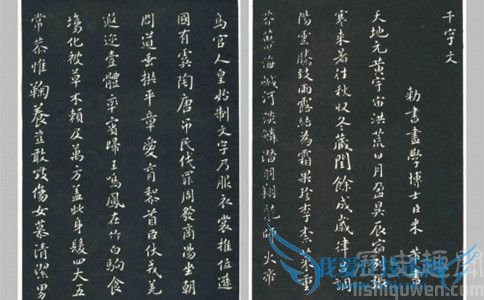 千字文
勅書畫學博士臣米芾
天地元黃宇宙洪荒日月盈昃辰宿列張
寒來暑往秋収冬藏閏餘成歲律調
陽雲騰致雨露結為霜果珍李柰菜重
芥薑海鹹河淡鱗潛羽翔龍師火帝
鳥官人皇始制文字乃服衣裳推位遜
國有虞陶唐吊民伐罪周發商湯坐朝
問道垂拱平章愛育黎首臣伏戎羌
遐迩壹體率賓歸王鳴鳳在竹白駒食
場化被草木賴及萬方蓋此身髮四大五
常恭惟鞠養豈敢毀傷女慕清潔男